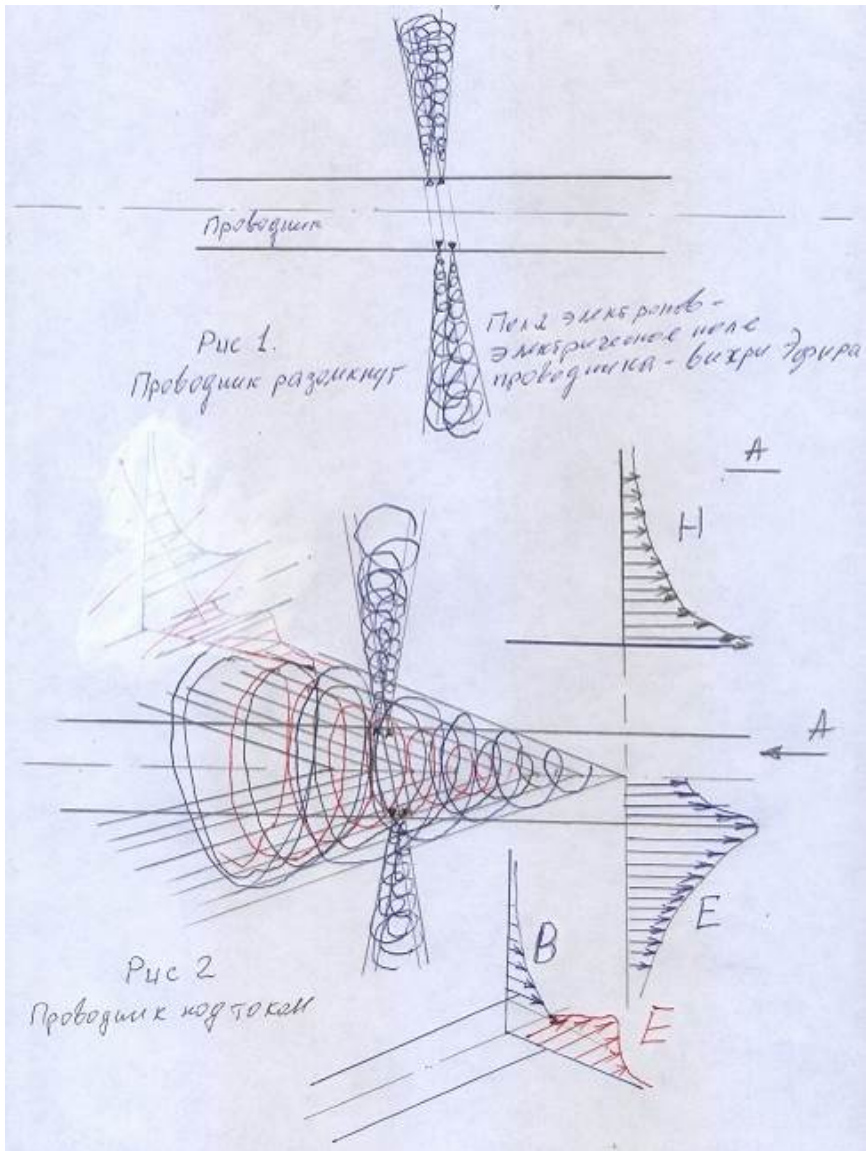 Проводник
Рис 1.
Проводник разомкнут
Поля электронов -
электрическое поле
проводника - вихри Эфира
А
Н
А
Е
В
Е
Рис 2
Проводник под током